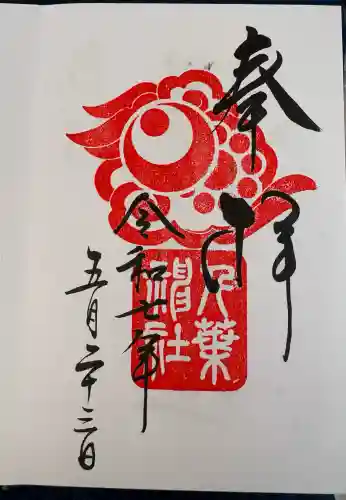 奉拝
令和七年
五月二十三日
葉
社